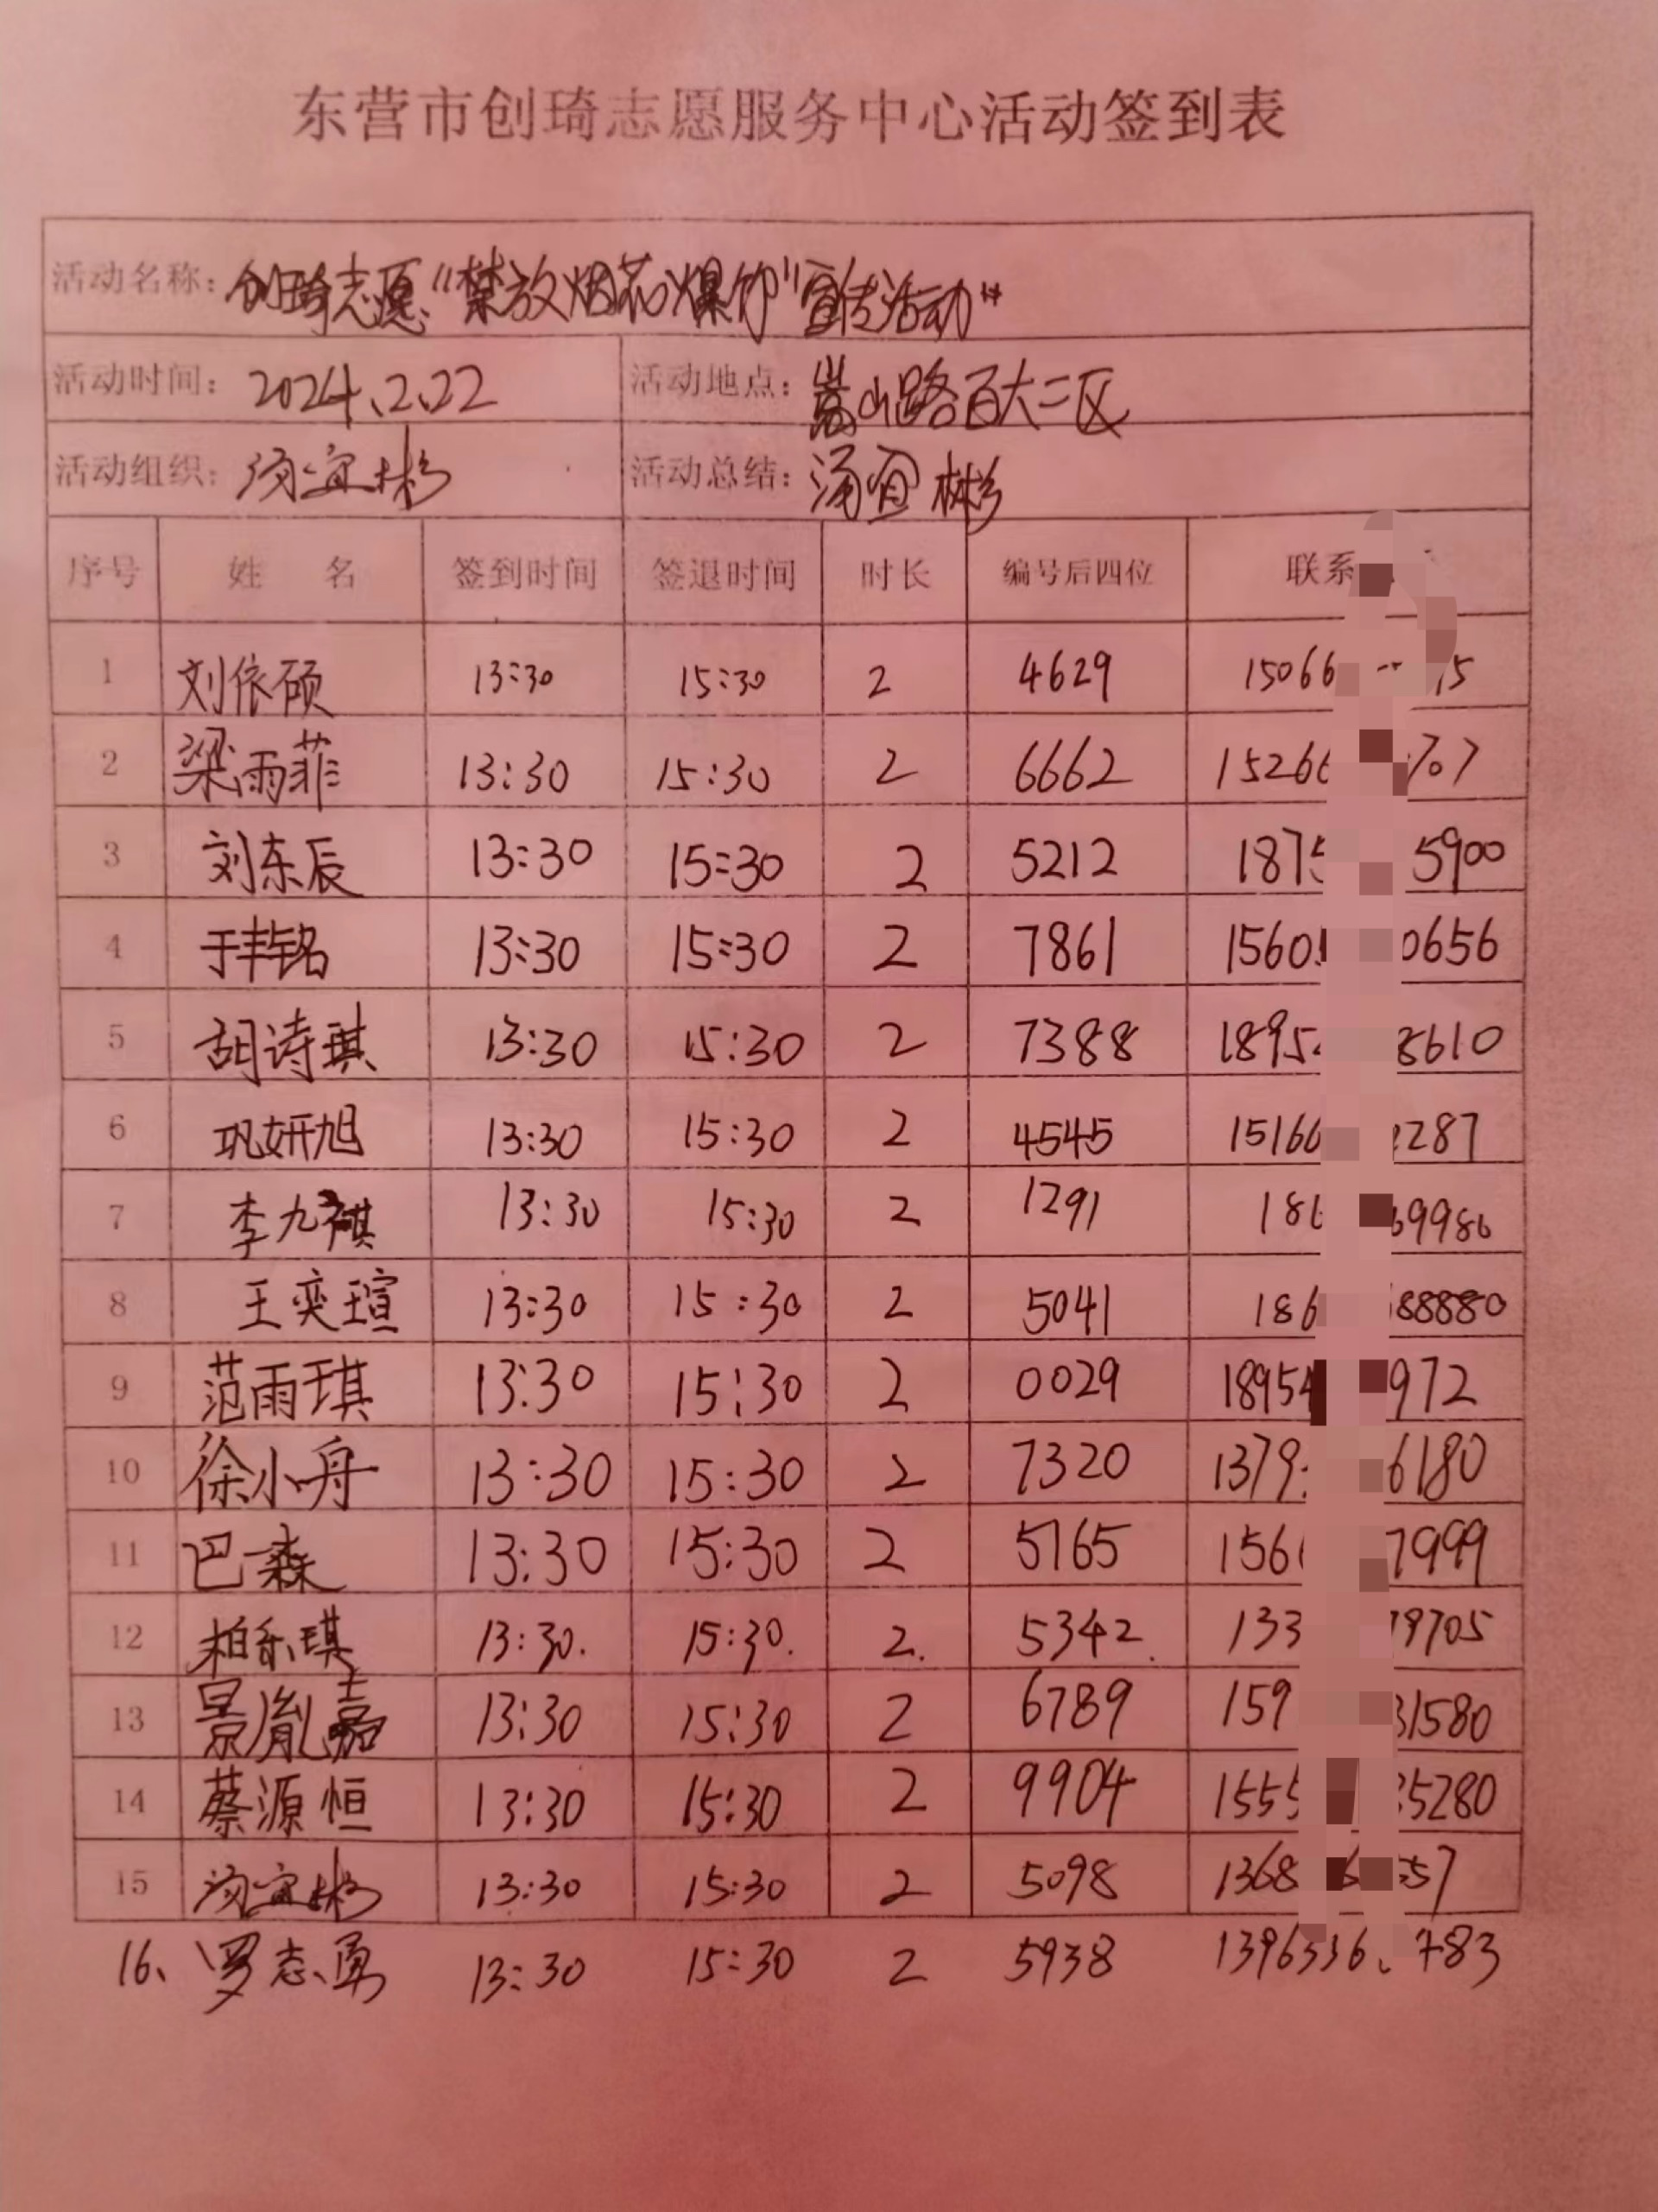 东营市创琦志愿服务中心活动签到表
活动名称：创琦志愿"禁放烟花爆竹"宣传活动"
活动时间：2024.2.22 活动地点：嵩山路百大二区
活动组织：汤宜彬 活动总结：汤宜彬
序号 姓 名 签到时间 签退时间 时长 编号后四位 联系
1 刘依硕 13:30 15:30 2 4629 15066 15
2 梁雨菲 13:30 15:30 2 6662 15266 707
3 刘东辰 13:30 15:30 2 5212 1875 5900
4 于丰铭 13:30 15:30 2 7861 1560 0656
5 胡诗琪 13:30 15:30 2 7388 1895 8610
6 巩妍旭 13:30 15:30 2 4545 15166 287
7 李九祺 13:30 15:30 2 1291 186 69986
8 王奕瑄 13:30 15:30 2 5041 186 88880
9 范雨琪 13:30 15:30 2 0029 18954 972
10 徐小舟 13:30 15:30 2 7320 1379 6180
11 巴森 13:30 15:30 2 5765 156 7999
12 柏乐琪 13:30. 15:30. 2. 5342. 133 19705
13 景胤嘉 13:30 15:30 2 6789 159 31580
14 蔡源恒 13:30 15:30 2 9904 1555 5280
15 汤宜彬 13:30 15:30 2 5098 1368 57
16、罗志勇 13:30 15:30 2 5938 1396336 783